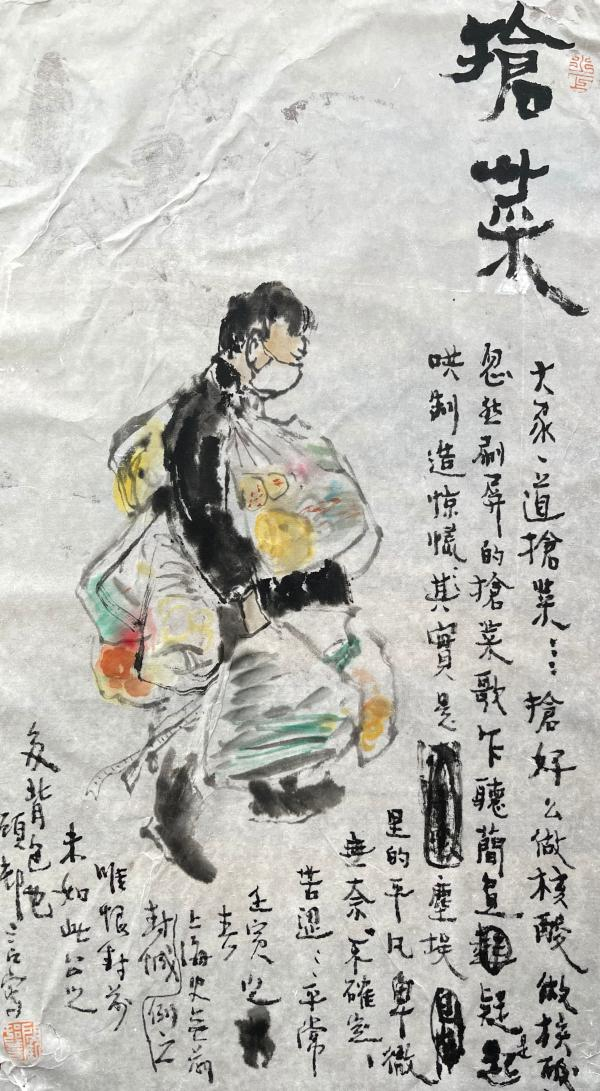 搶菜
大家、道搶菜…搶好么做核酸做核酸
忽然刷屏的搶菜歌乍聽簡直疑是起
哄制造惊慌、其實是塵埃
里的平凡卑微
無奈、不確定、
苦澀：平常
壬寅
春
上海史無前
封城
唯恨封前
未如此公之
負背包也